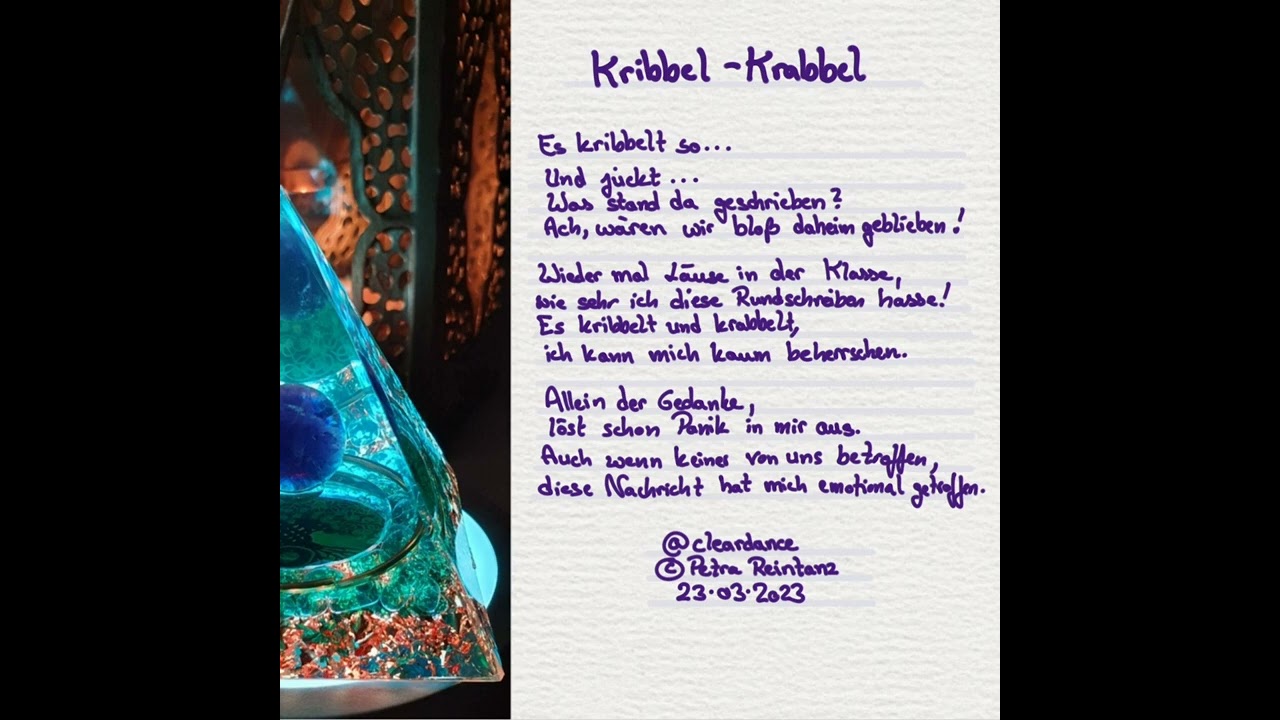 Kribbel - Krabbel
Es kribbelt so...
Und jückt...
Was stand da geschrieben?
Ach, wären wir bloß daheim geblieben!
Wieder mal Läuse in der Klasse,
wie sehr ich diese Rundschreiben hasse!
Es kribbelt und krabbelt,
ich kann mich kaum beherrschen.
Allein der Gedanke,
löst schon Panik in mir aus.
Auch wenn keiner von uns betroffen,
diese Nachricht hat mich emotional getroffen.
@cleardance
© Petra Reintanz
23.03.2023